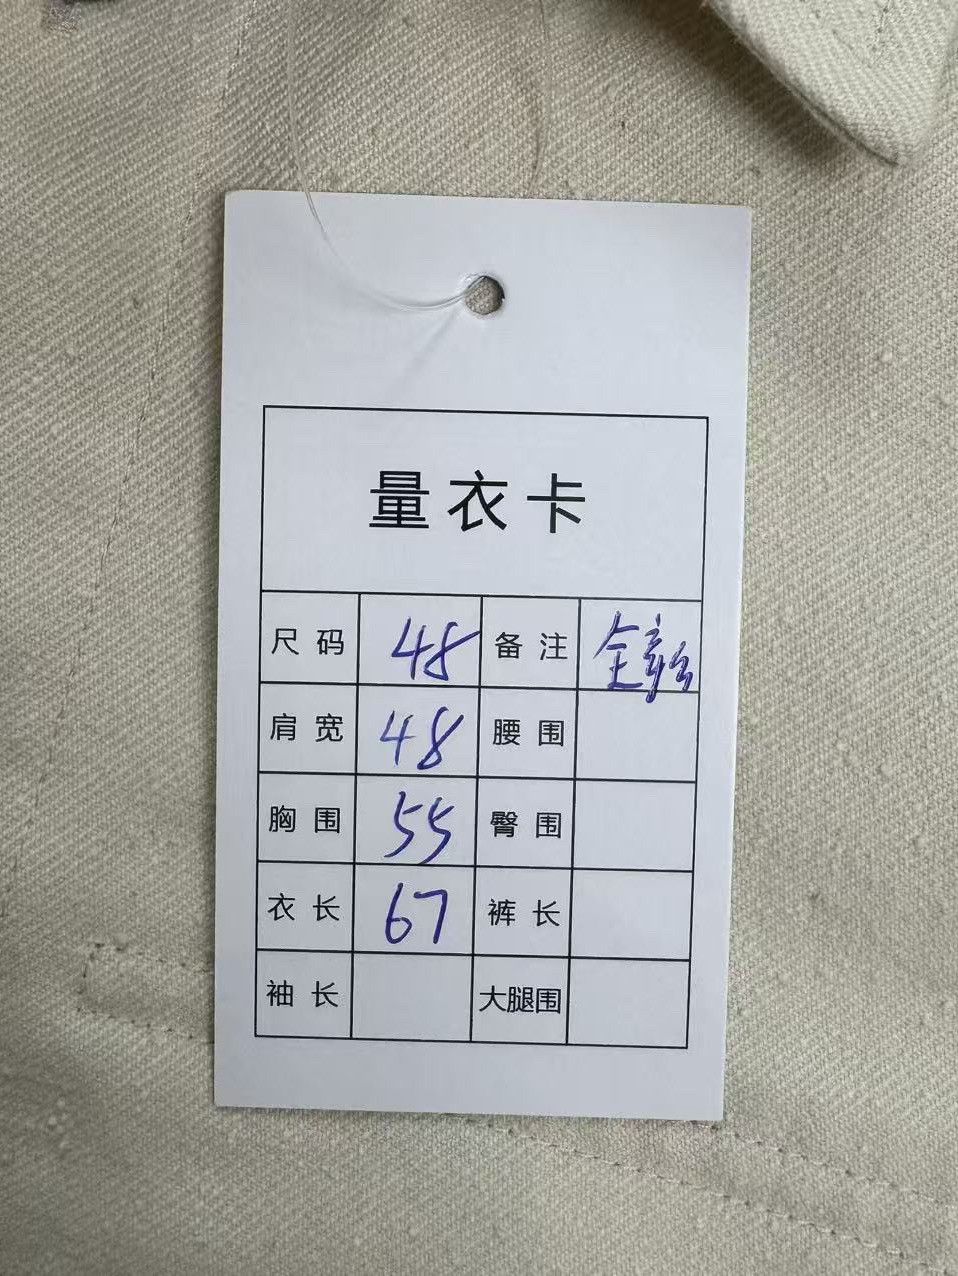 量衣卡
尺码 48 备注 全新
肩宽 48 腰围
胸围 55 臀围
衣长 67 裤长
袖长 大腿围